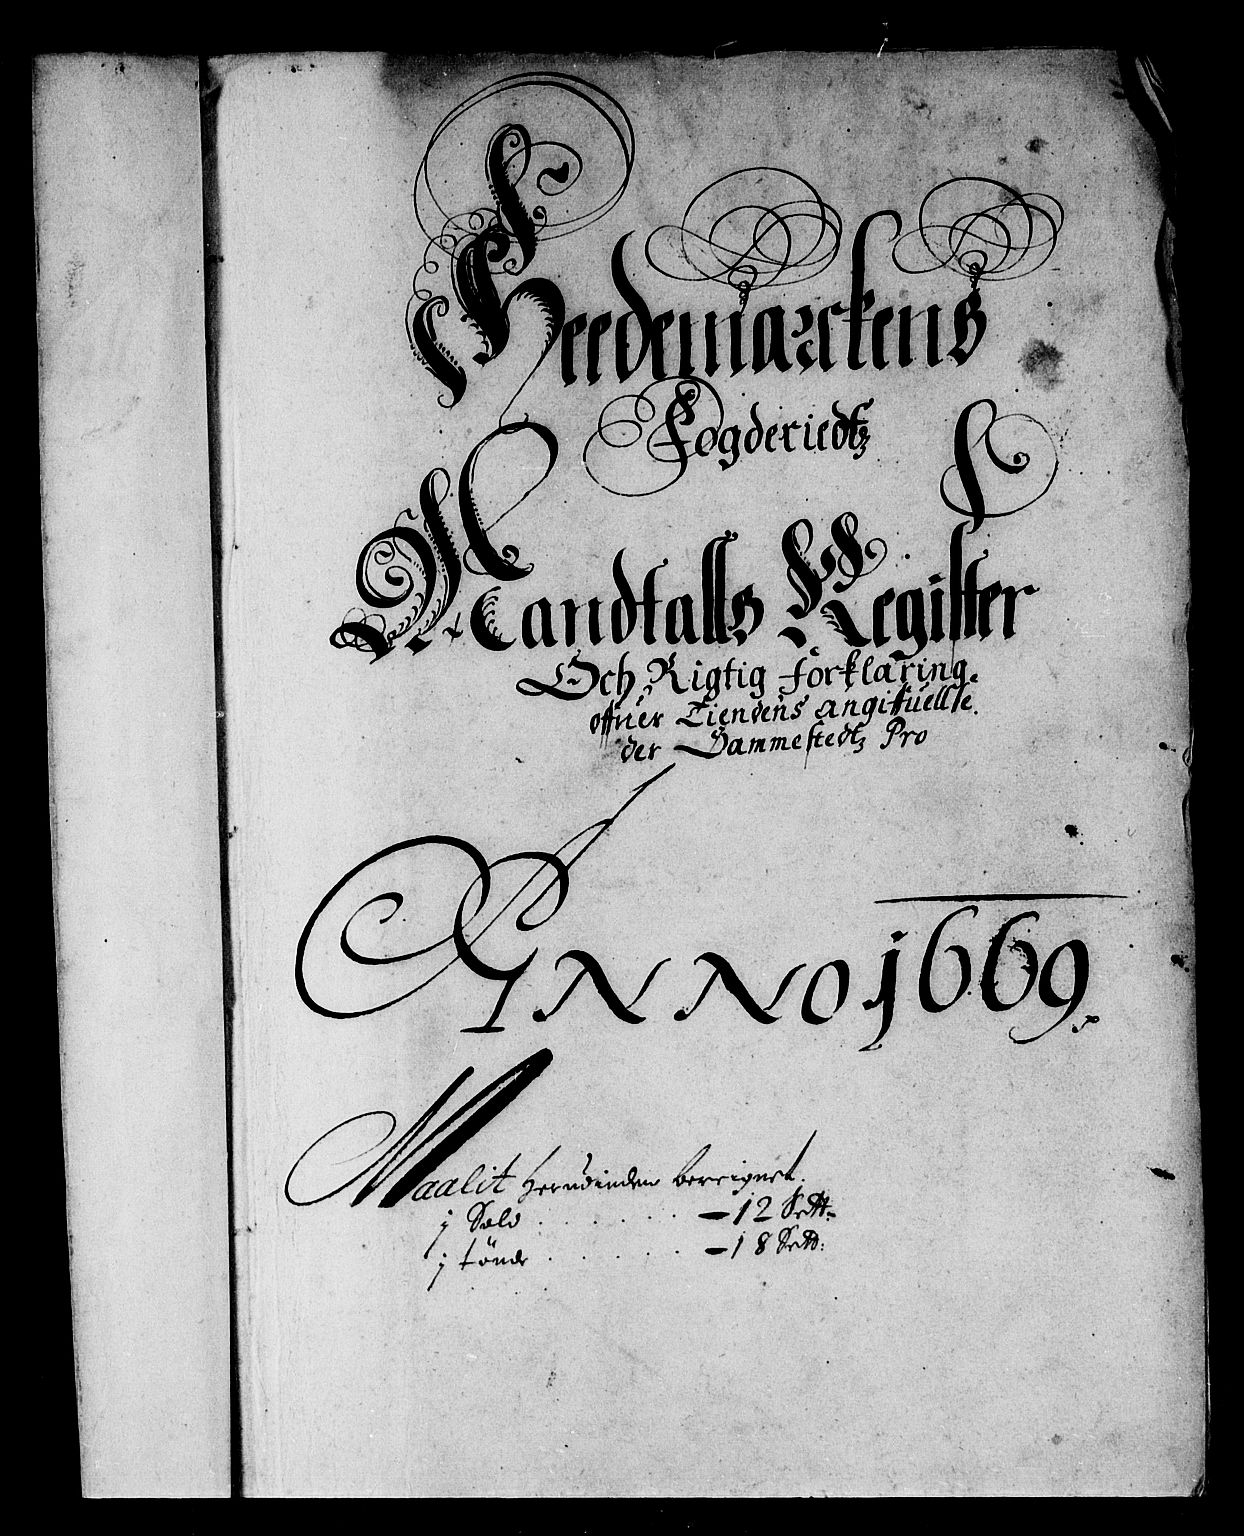 Heedemarckens
Fogderiedtz
Mandtalls Register
Och Rigtig forklaring.
offuer Tiendens angiffuellse.
der Sammestedtz Pro
ANNO 1669.
Maalit herudinden bereignet.
j Sold . . . . . . - 12 Sett:
j tönde . . . . . . - 18 Sett: